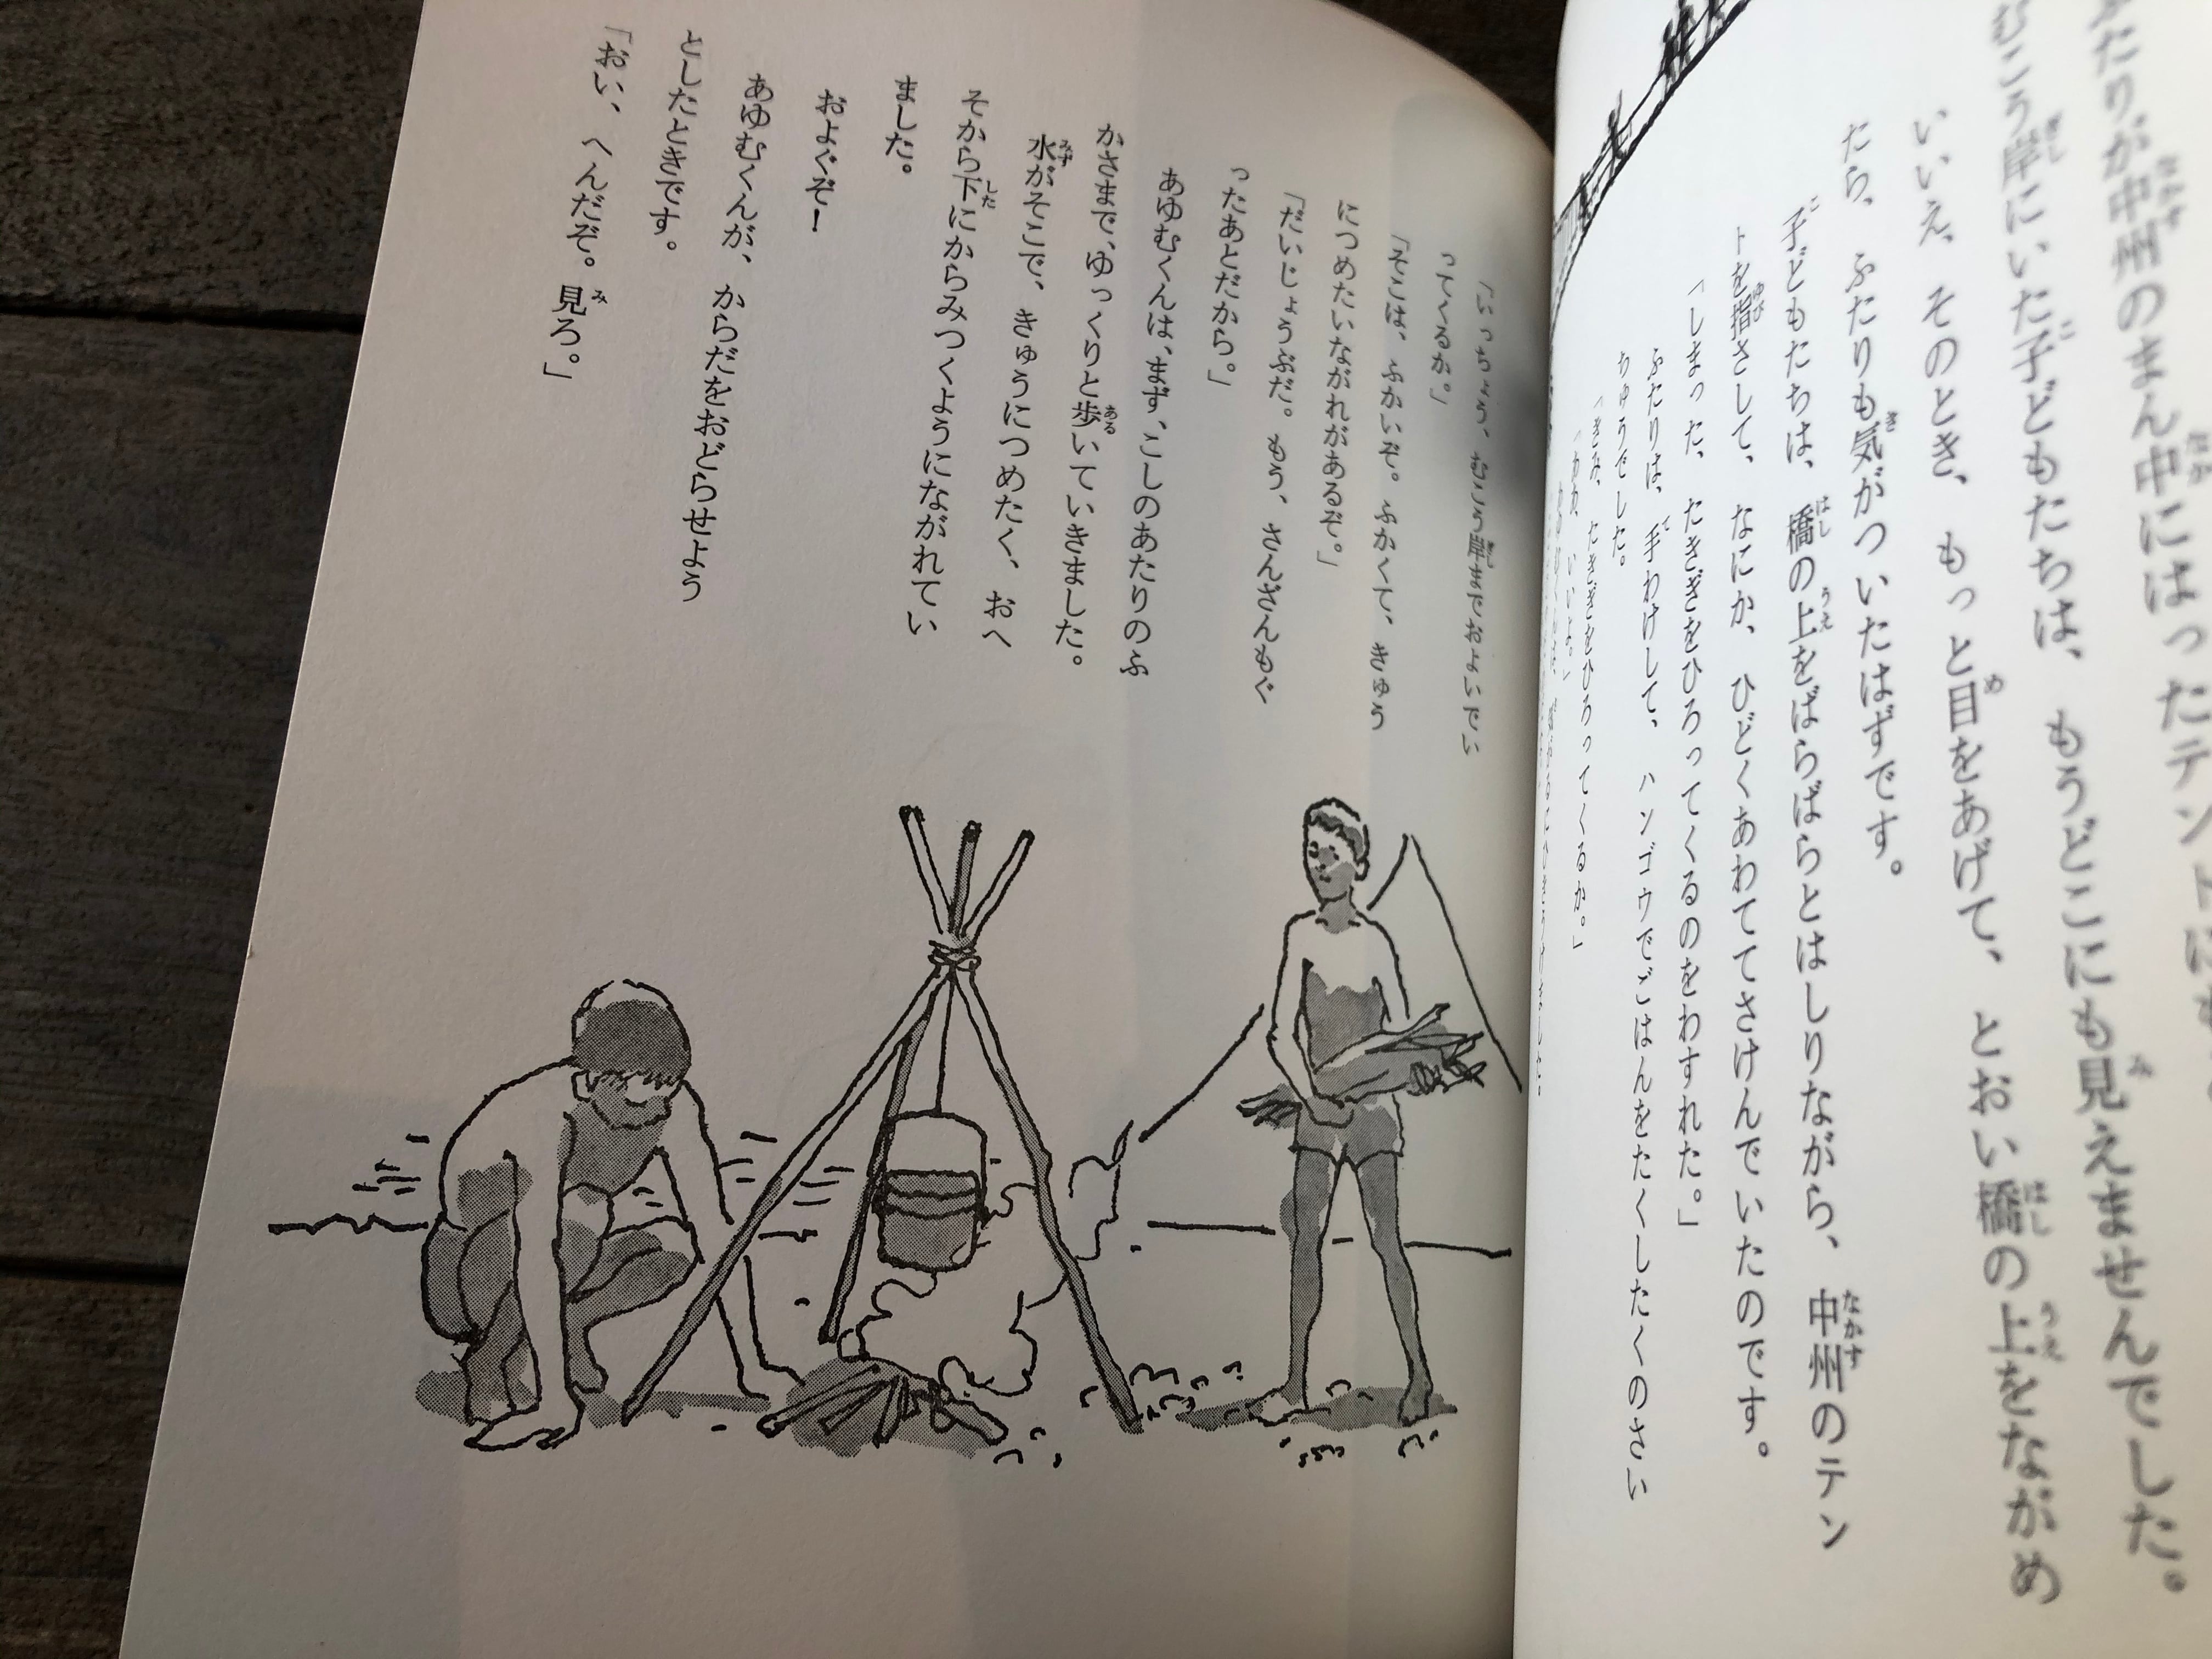 ふたりが中州のまん中にはったテントにも
むこう岸にいた子どもたちは、もうどこにも見えませんでした。
いいえ、そのとき、もっと目をあげて、とおい橋の上をながめ
たら、ふたりも気がついたはずです。
子どもたちは、橋の上をばらばらとはしりながら、中州のテン
トを指さして、なにか、ひどくあわててさけんでいたのです。
「しまった、たきぎをひろってくるのをわすれた。」
ふたりは、手わけして、ハンゴウでごはんをたくしたくのさい
ちゅうでした。
「きみ、たきぎをひろってくるか。」
いいよ。」
「いっちょう、むこう岸までおよいでい
ってくるか。」
「そこは、ふかいぞ。ふかくて、きゅう
につめたいながれがあるぞ。」
「だいじょうぶだ。もう、さんざんもぐ
ったあとだから。」
あゆむくんは、まず、こしのあたりのふ
かさまで、ゆっくりと歩いていきました。
水がそこで、きゅうにつめたく、おへ
そから下にからみつくようにながれてい
ました。
およぐぞ！
あゆむくんが、からだをおどらせよう
としたときです。
「おい、へんだぞ。見ろ。」